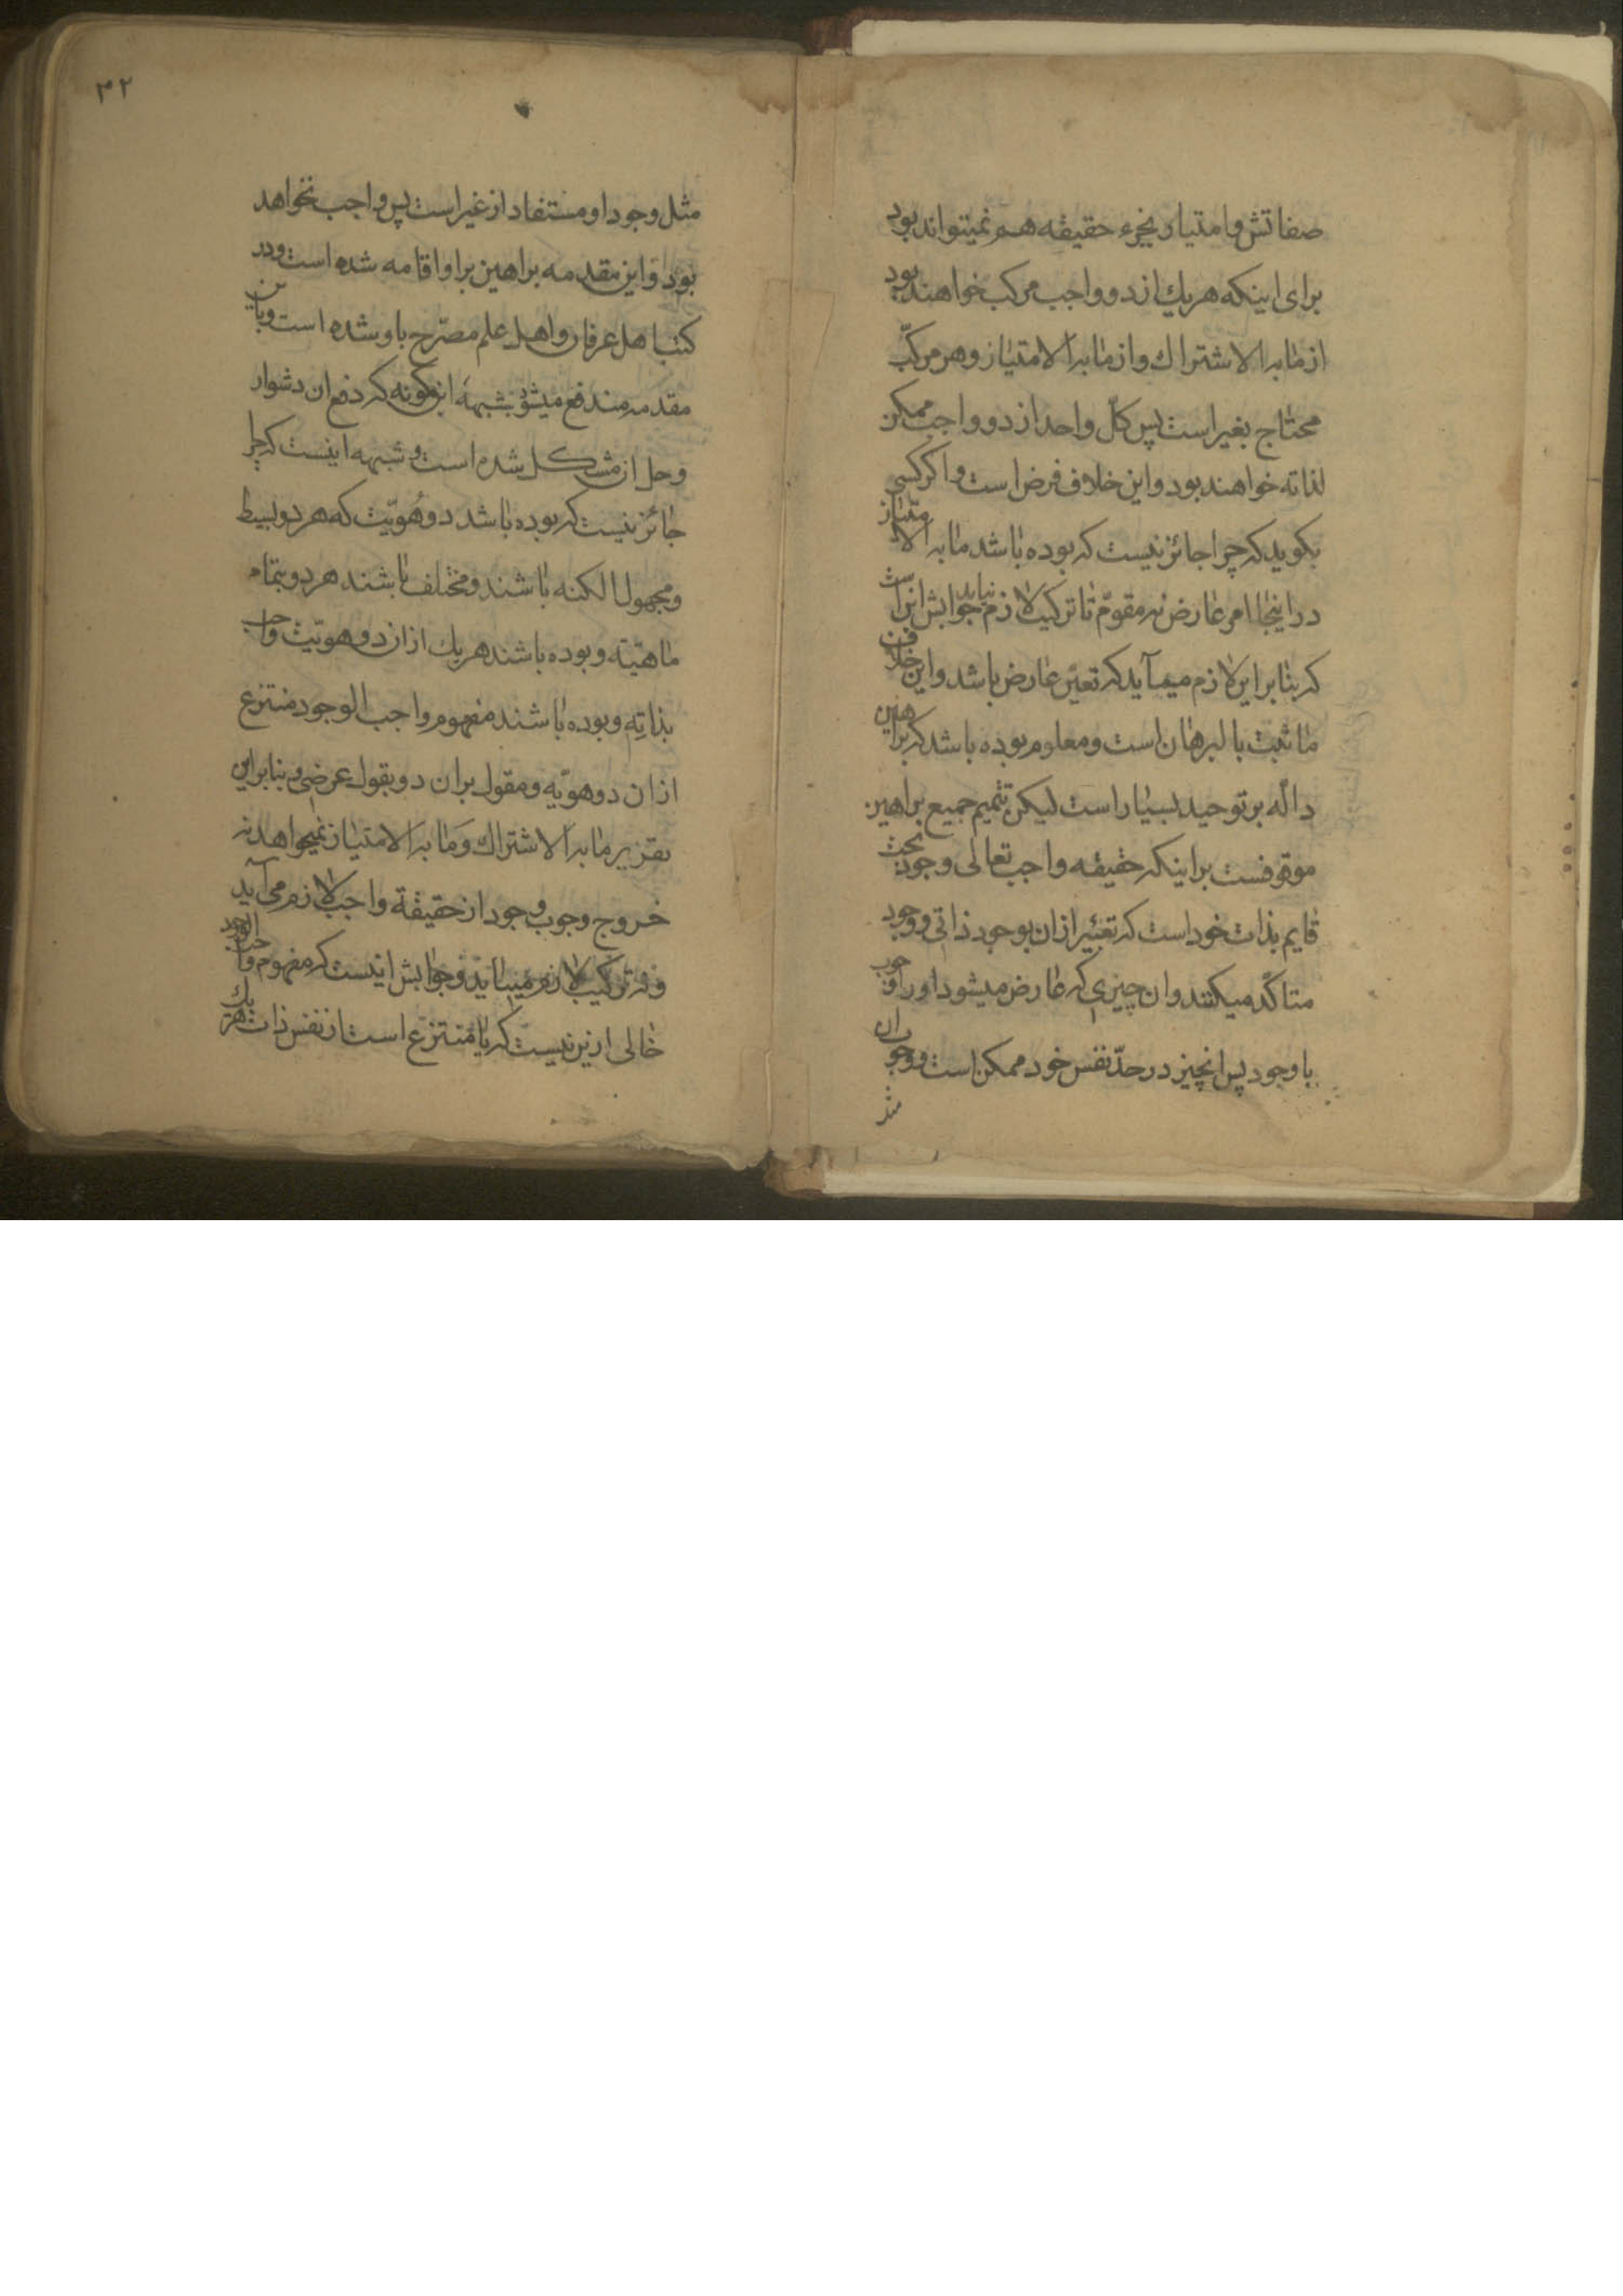 صفاتش و امتیاز بجزء حقیقه هم نمیتواند بود
برای اینکه هریك از دو واجب مرکب خواهند بود
از ما به الاشتراك و از ما به الامتیاز و هر مرکّب
محتاج بغیر است پس کلّ واحد از دو واجب ممکن
لذاته خواهند بود و این خلاف فرض است و اکر کسی
بکوید که چرا جائز نیست که بوده باشد ما به الامتیاز
در اینجا امر عارض نه مقوّم تا ترکیب لازم نیاید جوابش اینست
که بنا براین لازم میآید که تعیّن عارض باشد و این خلاف
ما ثبت بالبرهان است و معلوم بوده باشد که براهین
دالّه بر توحید بسیار است لیکن تتمیم جمیع براهین
موقوفست بر اینکه حقیقه واجب تعالی وجود بحت
قایم بذات خود است که تعبیر ازان بوجود ذاتی و وجود
متاکّد میکنند وان چیزی که عارض میشود اورا وجوب
یا وجود پس انچیز در حدّ نفس خود ممکن است و وجوب ان
مثل
۳۲
مثل وجود او مستفاد از غیر است پس واجب نخواهد
بود و این مقدمه براهین براو اقامه شده است و در
کتب اهل عرفان و اهل علم مصرّح باو شده است و باین
مقدمه مندفع میشود شبههٔ ابن کمونه که دفع ان دشوار
و حل ان مشکل شده است و شبهه اینست که چرا
جائز نیست که بوده باشد دو هُویّت که هر دو بسیط
و مجهول الکنه باشند و مختلف باشند هر دو بتمام
ماهیّة و بوده باشند هریك ازان دو هویّت واجب
بذاتِه و بوده باشند مفهوم واجب الوجود منتزع
ازان دو هویّه و مقول بران دو بقول عرضی و بنابراین
تقریر ما به الاشتراك و ما به الامتیاز نمیخواهد نه
خروج وجوب وجود از حقیقة واجب لازم می آید
و نه ترکیب لازم میاید و جوابش اینست که مفهوم واجب الوجود
خالی ازین نیست که یا منتزع است از نفس ذات هریك